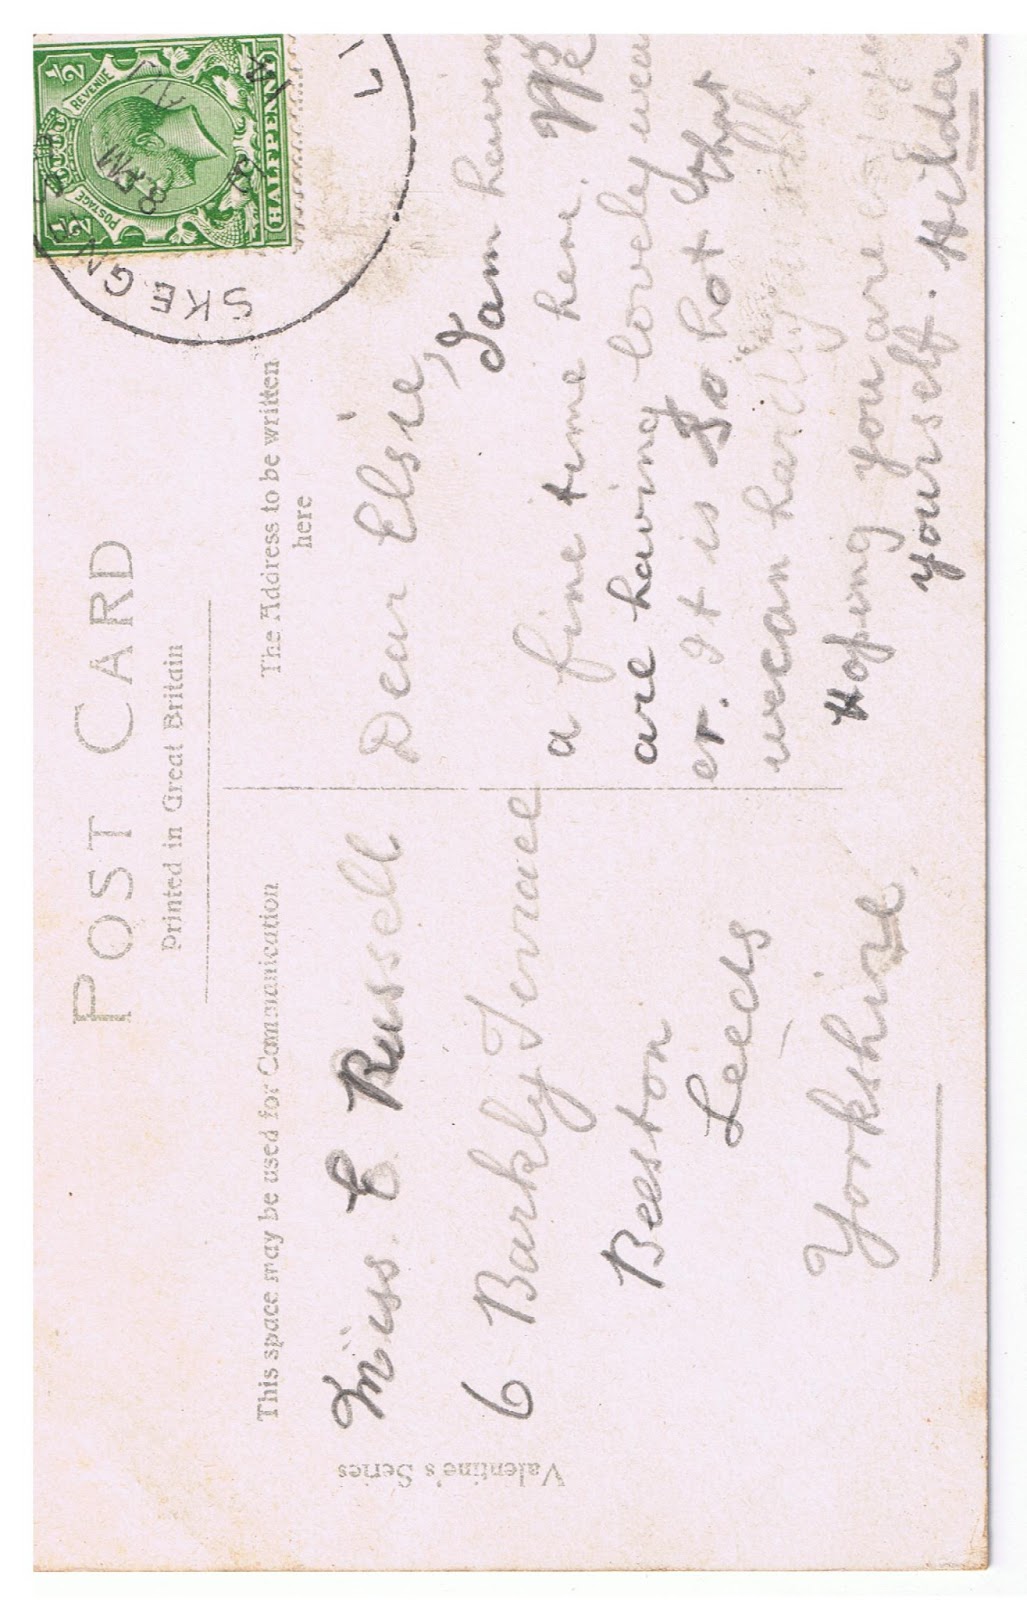 POST CARD
Printed in Great Britain
This space may be used for Communication
The Address to be written
here
Valentine's Series
SKEGNE
8. PM
18
½ POSTAGE REVENUE ½
HALFPENNY
Miss. E Russell
6 Barkly Terrace
Beeston
Leeds
Yorkshire.
Dear Elsie,
I am having
a fine time here. We
are having lovely weath
er. It is So hot that
wecan hardly
Hoping you are
yourself. Hilda.